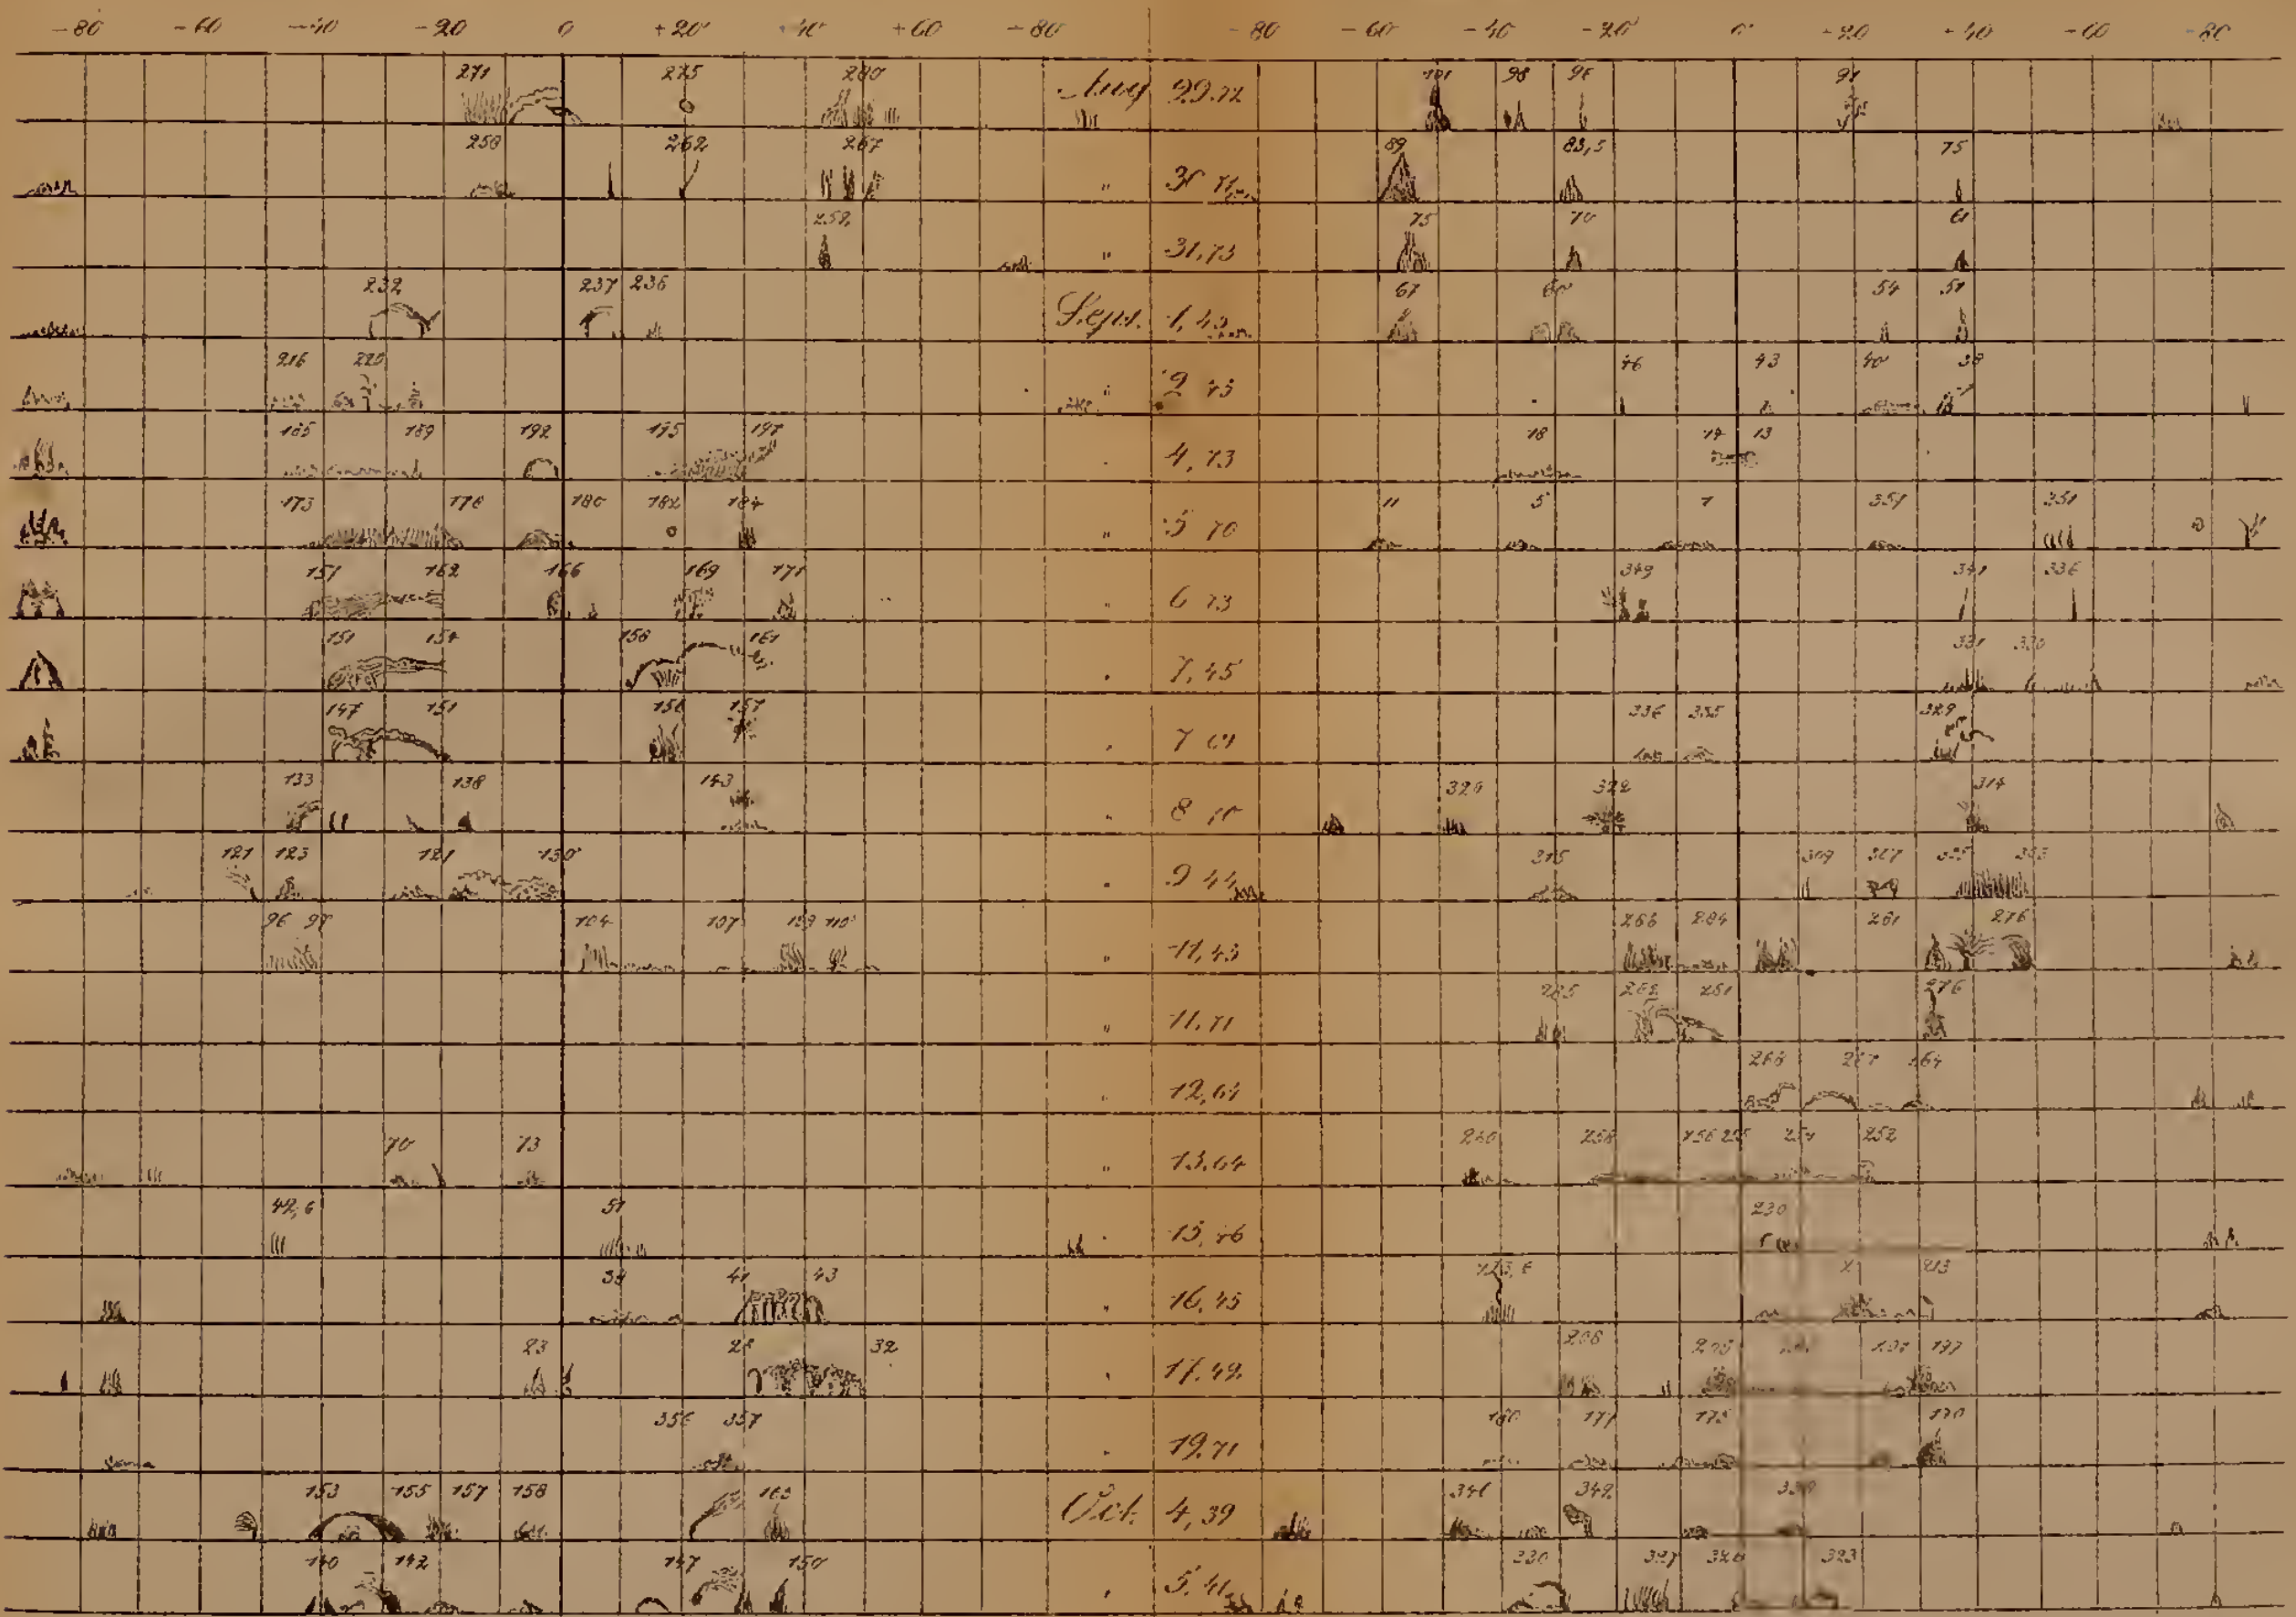 -80 -60 -40 -20 0 +20 +40 +60 -80 -80 -60 -40 -20 0 -20 -40 -60 -80
271 275 280 Aug 29.72 101 98 91
258 262 267 " 89 83,5 75
" 31,73 75 70 61
232 237 236 Sept. 67 54 51
216 220 " 46 43 40 38
185 189 192 195 197 4,73 18 14 13
173 178 180 182 184 " 5 70 11 5 1 351 351
157 162 166 169 171 " 6 73 349 341 336
151 154 158 161 7,45 331 330
147 151 156 157 336 335 329
133 138 143 8 320 322 314
121 123 130 9 44 315 309 307
96 97 104 107 109 110 " 11,45 286 284 281 276
" 11,71 285 282 281 276
12,64 268 267 264
70 73 " 13,64 260 258 256 255 254 252
42,6 51 15,46 230
39 41 43 16,45 213
23 28 32 17,49 206 197
356 357 19,71 180 177 175 170
153 155 157 158 163 Oct. 4,39 346 342
140 142 147 150 5,41 330 327 326 323